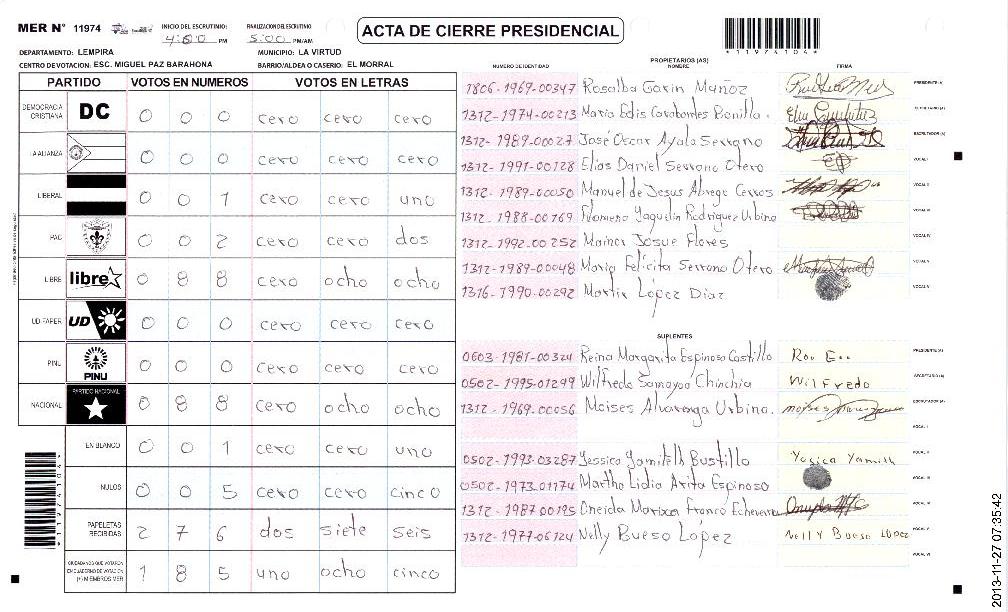 MER N° 11974 INICIO DEL ESCRUTINIO: 4:00 PM FINALIZACION DEL ESCRUTINIO 5:00 PM/AM ACTA DE CIERRE PRESIDENCIAL
*11974104*
DEPARTAMENTO: LEMPIRA MUNICIPIO: LA VIRTUD
CENTRO DE VOTACION: ESC. MIGUEL PAZ BARAHONA BARRIO/ALDEA O CASERIO: EL MORRAL
PARTIDO VOTOS EN NUMEROS VOTOS EN LETRAS
DEMOCRACIA CRISTIANA DC 0 0 0 cero cero cero
LA ALIANZA 0 0 0 cero cero cero
LIBERAL 0 0 1 cero cero uno
PAC 0 0 2 cero cero dos
LIBRE libre 0 8 8 cero ocho ocho
UD-FAPER UD 0 0 0 cero cero cero
PINU PINU 0 0 0 cero cero cero
NACIONAL PARTIDO NACIONAL 0 8 8 cero ocho ocho
EN BLANCO 0 0 1 cero cero uno
NULOS 0 0 5 cero cero cinco
PAPELETAS RECIBIDAS 2 7 6 dos siete seis
CIUDADANOS QUE VOTARON EN CUADERNO DE VOTACION (+) MIEMBROS MER 1 8 5 uno ocho cinco
*11974104*
PROPIETARIOS (AS)
NUMERO DE IDENTIDAD NOMBRE FIRMA
1806-1969-00347 Rosalba Garin Muñoz PRESIDENTE (A)
1312-1974-00213 Maria Edis Bonilla. SECRETARIO (A)
1312-1989-00027 José Oscar Ayala Serrano ESCRUTADOR (A)
1312-1991-00128 Elias Daniel Serrano Otero VOCAL I
1312-1989-00050 Manuel de Jesus Abrego VOCAL II
1312-1988-00169 Filomena Yaquelin Rodriguez Urbina VOCAL III
1312-1992-00252 Mainor Josue Flores VOCAL IV
1312-1989-00048 Maria Felicita Serrano Otero VOCAL V
1316-1990-00292 Martir López Diaz VOCAL VI
SUPLENTES
0603-1981-00324 Reina Margarita Espinosa Castillo PRESIDENTE (A)
0502-1995-01299 Wilfredo Samayoa Chinchia Wilfredo SECRETARIO (A)
1312-1969-00056 Moises Alvarenga Urbina. moises ESCRUTADOR (A)
VOCAL I
0502-1993-03287 Yessica Yamileth Bustillo Yesica Yamileth VOCAL II
0502-1973-01174 Martha Lidia Arita Espinoso VOCAL III
1312-1987-00195 Oneida Marixa Franco Echeverria VOCAL IV
1312-1977-06124 Nelly Bueso López Nelly Bueso López VOCAL V
VOCAL VI
2013-11-27 07:35:42